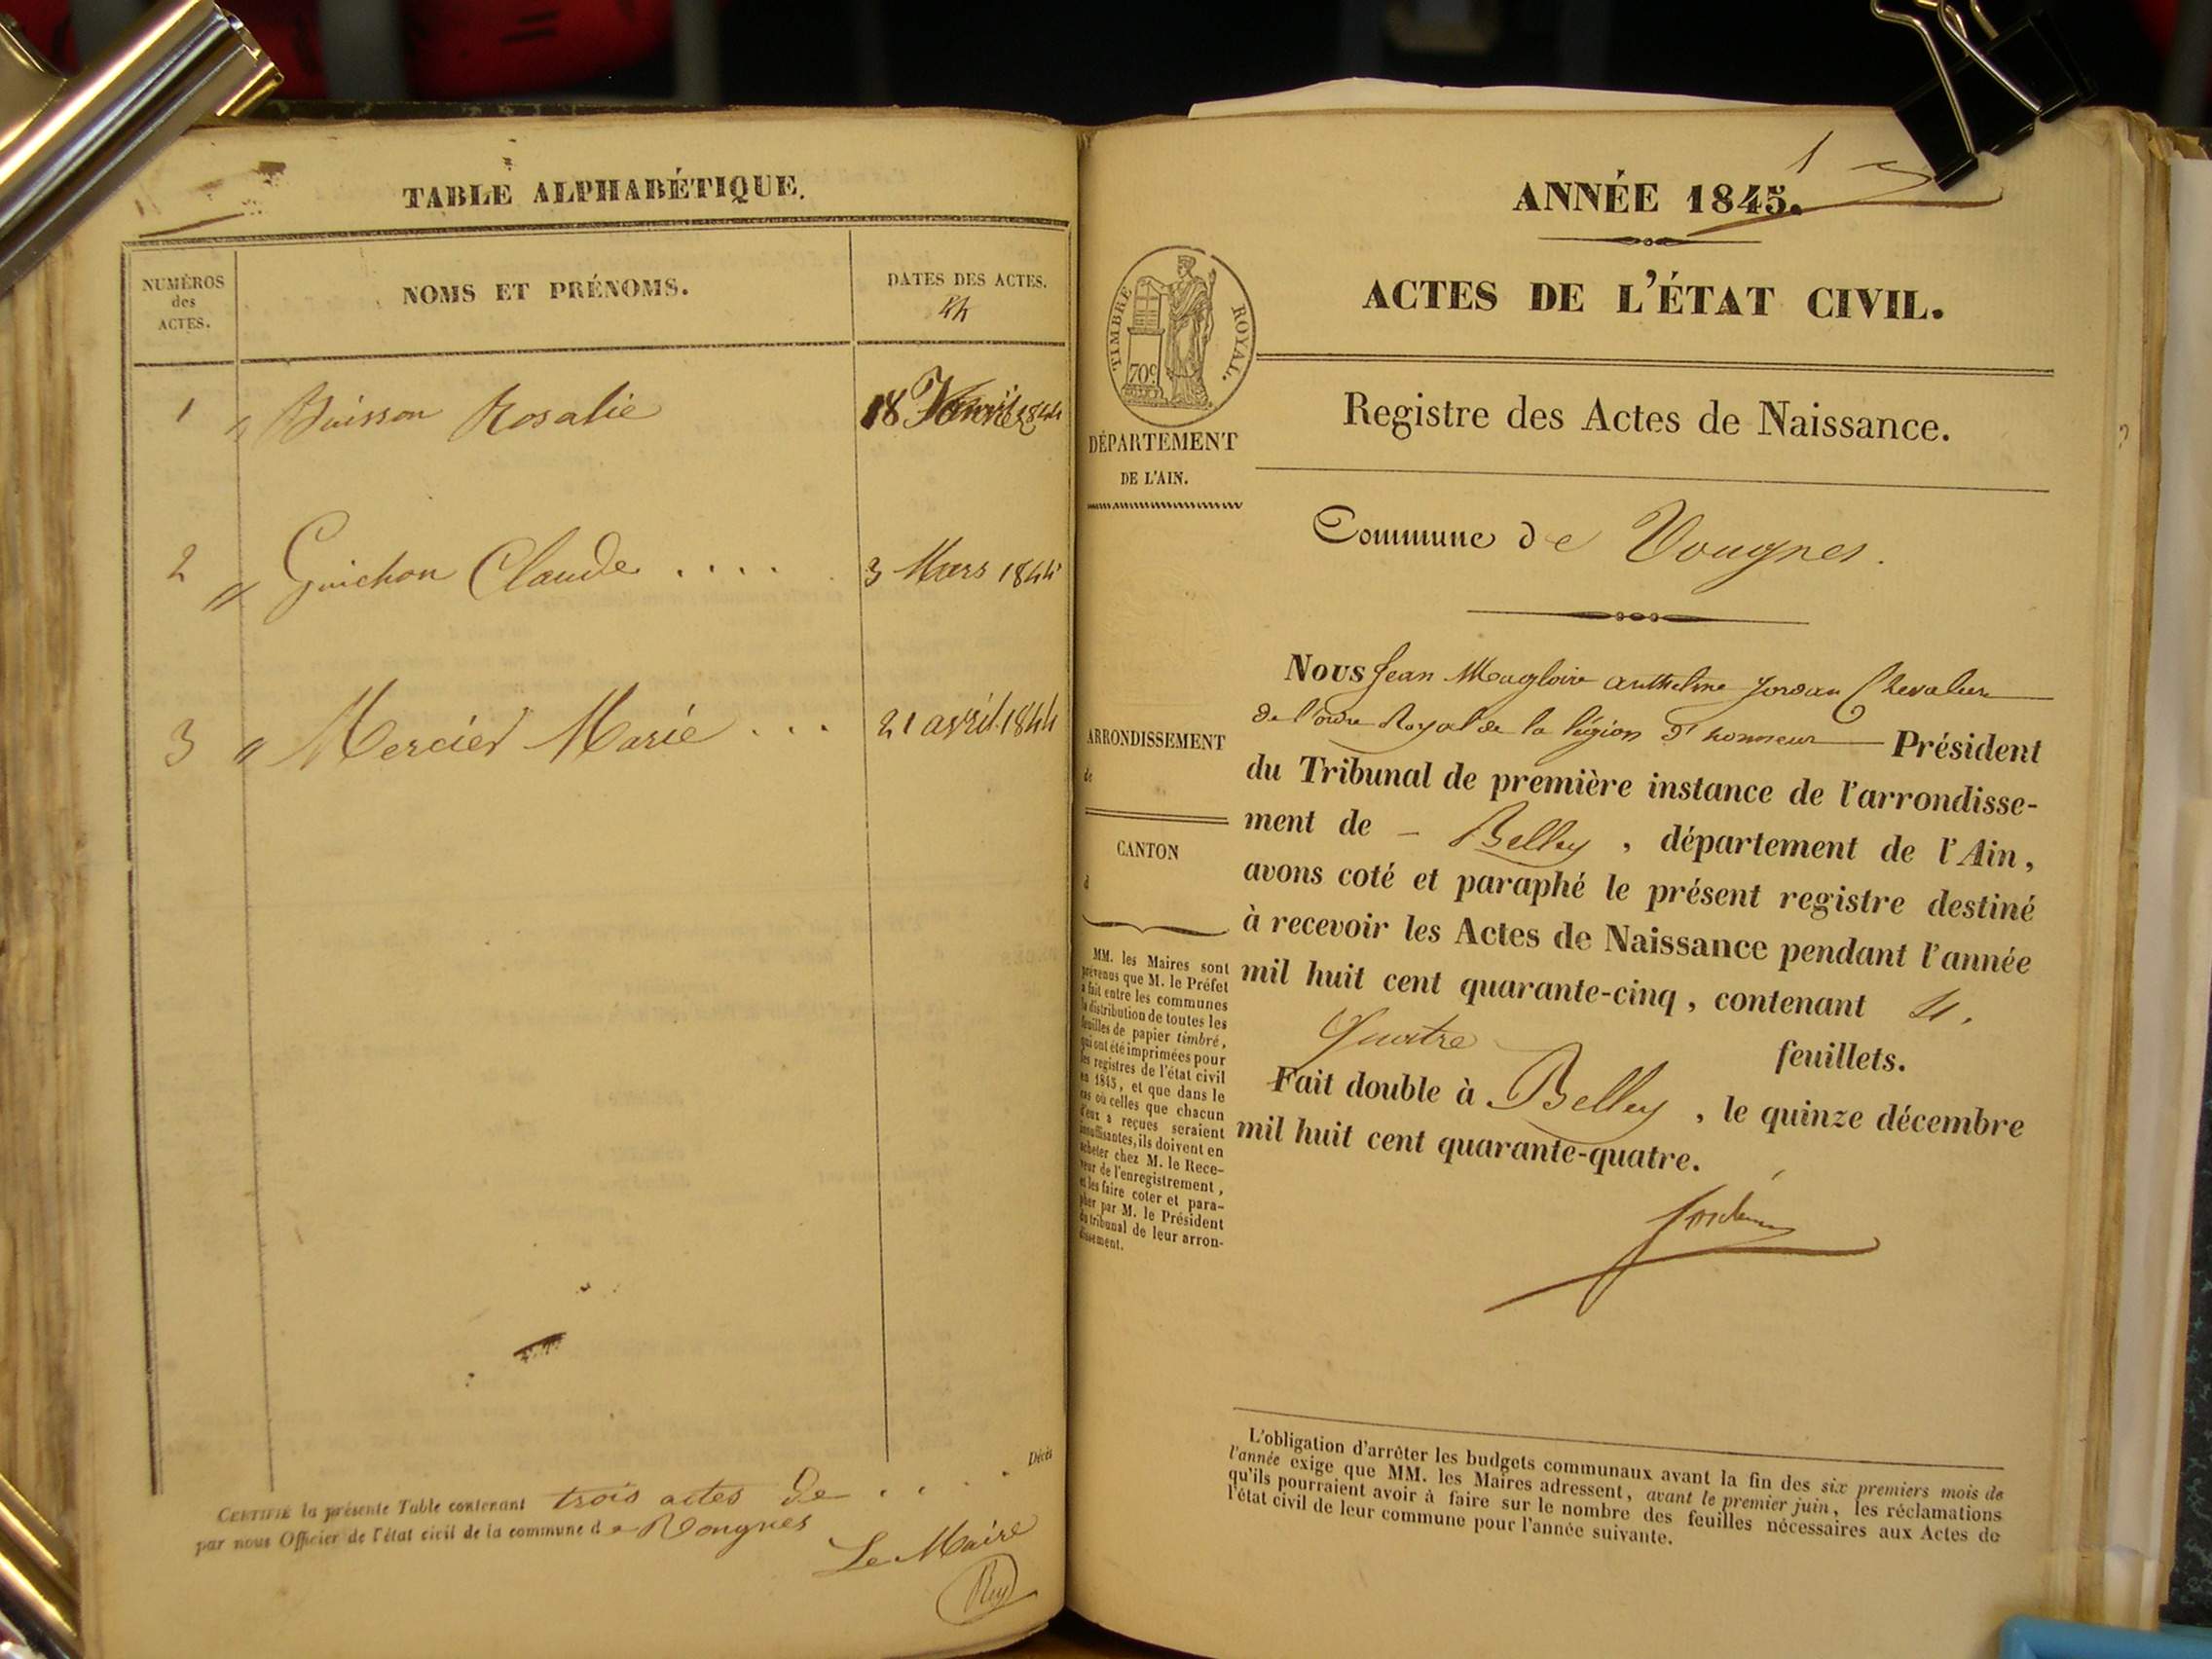 TABLE ALPHABÉTIQUE.
NUMÉROS
des
ACTES.
NOMS ET PRÉNOMS.
DATES DES ACTES.
44
1 " Buisson Rosalie 18 1844
2 " Guichon Claude .... 3 Mars 1844
3 " Mercier Marie ... 21 avril 1844
Décès
CERTIFIÉ la présente Table contenant trois actes de ....
par nous Officier de l'état civil de la commune de Vongnes
Le Maire
Rey
1
ANNÉE 1845.
ACTES DE L'ÉTAT CIVIL.
TIMBRE ROYAL.
70c
Registre des Actes de Naissance.
DÉPARTEMENT
DE L'AIN.
Commune de Vougnes.
Nous Jean Magloire Anthelme Jordan Chevalier
de l'ordre Royal de la légion d'honneur — Président
du Tribunal de première instance de l'arrondisse-
ment de - Belley, département de l'Ain,
avons coté et paraphé le présent registre destiné
à recevoir les Actes de Naissance pendant l'année
mil huit cent quarante-cinq, contenant 4.
Quatre feuillets.
Fait double à Belley, le quinze décembre
mil huit cent quarante-quatre.
Jordan
ARRONDISSEMENT
de
CANTON
d
MM. les Maires sont
prévenus que M. le Préfet
a fait entre les communes
la distribution de toutes les
feuilles de papier timbré,
qui ont été imprimées pour
les registres de l'état civil
en 1845, et que dans le
cas où celles que chacun
d'eux a reçues seraient
insuffisantes, ils doivent en
acheter chez M. le Rece-
veur de l'enregistrement,
et les faire coter et para-
pher par M. le Président
du tribunal de leur arron-
dissement.
L'obligation d'arrêter les budgets communaux avant la fin des six premiers mois de
l'année exige que MM. les Maires adressent, avant le premier juin, les réclamations
qu'ils pourraient avoir à faire sur le nombre des feuilles nécessaires aux Actes de
l'état civil de leur commune pour l'année suivante.